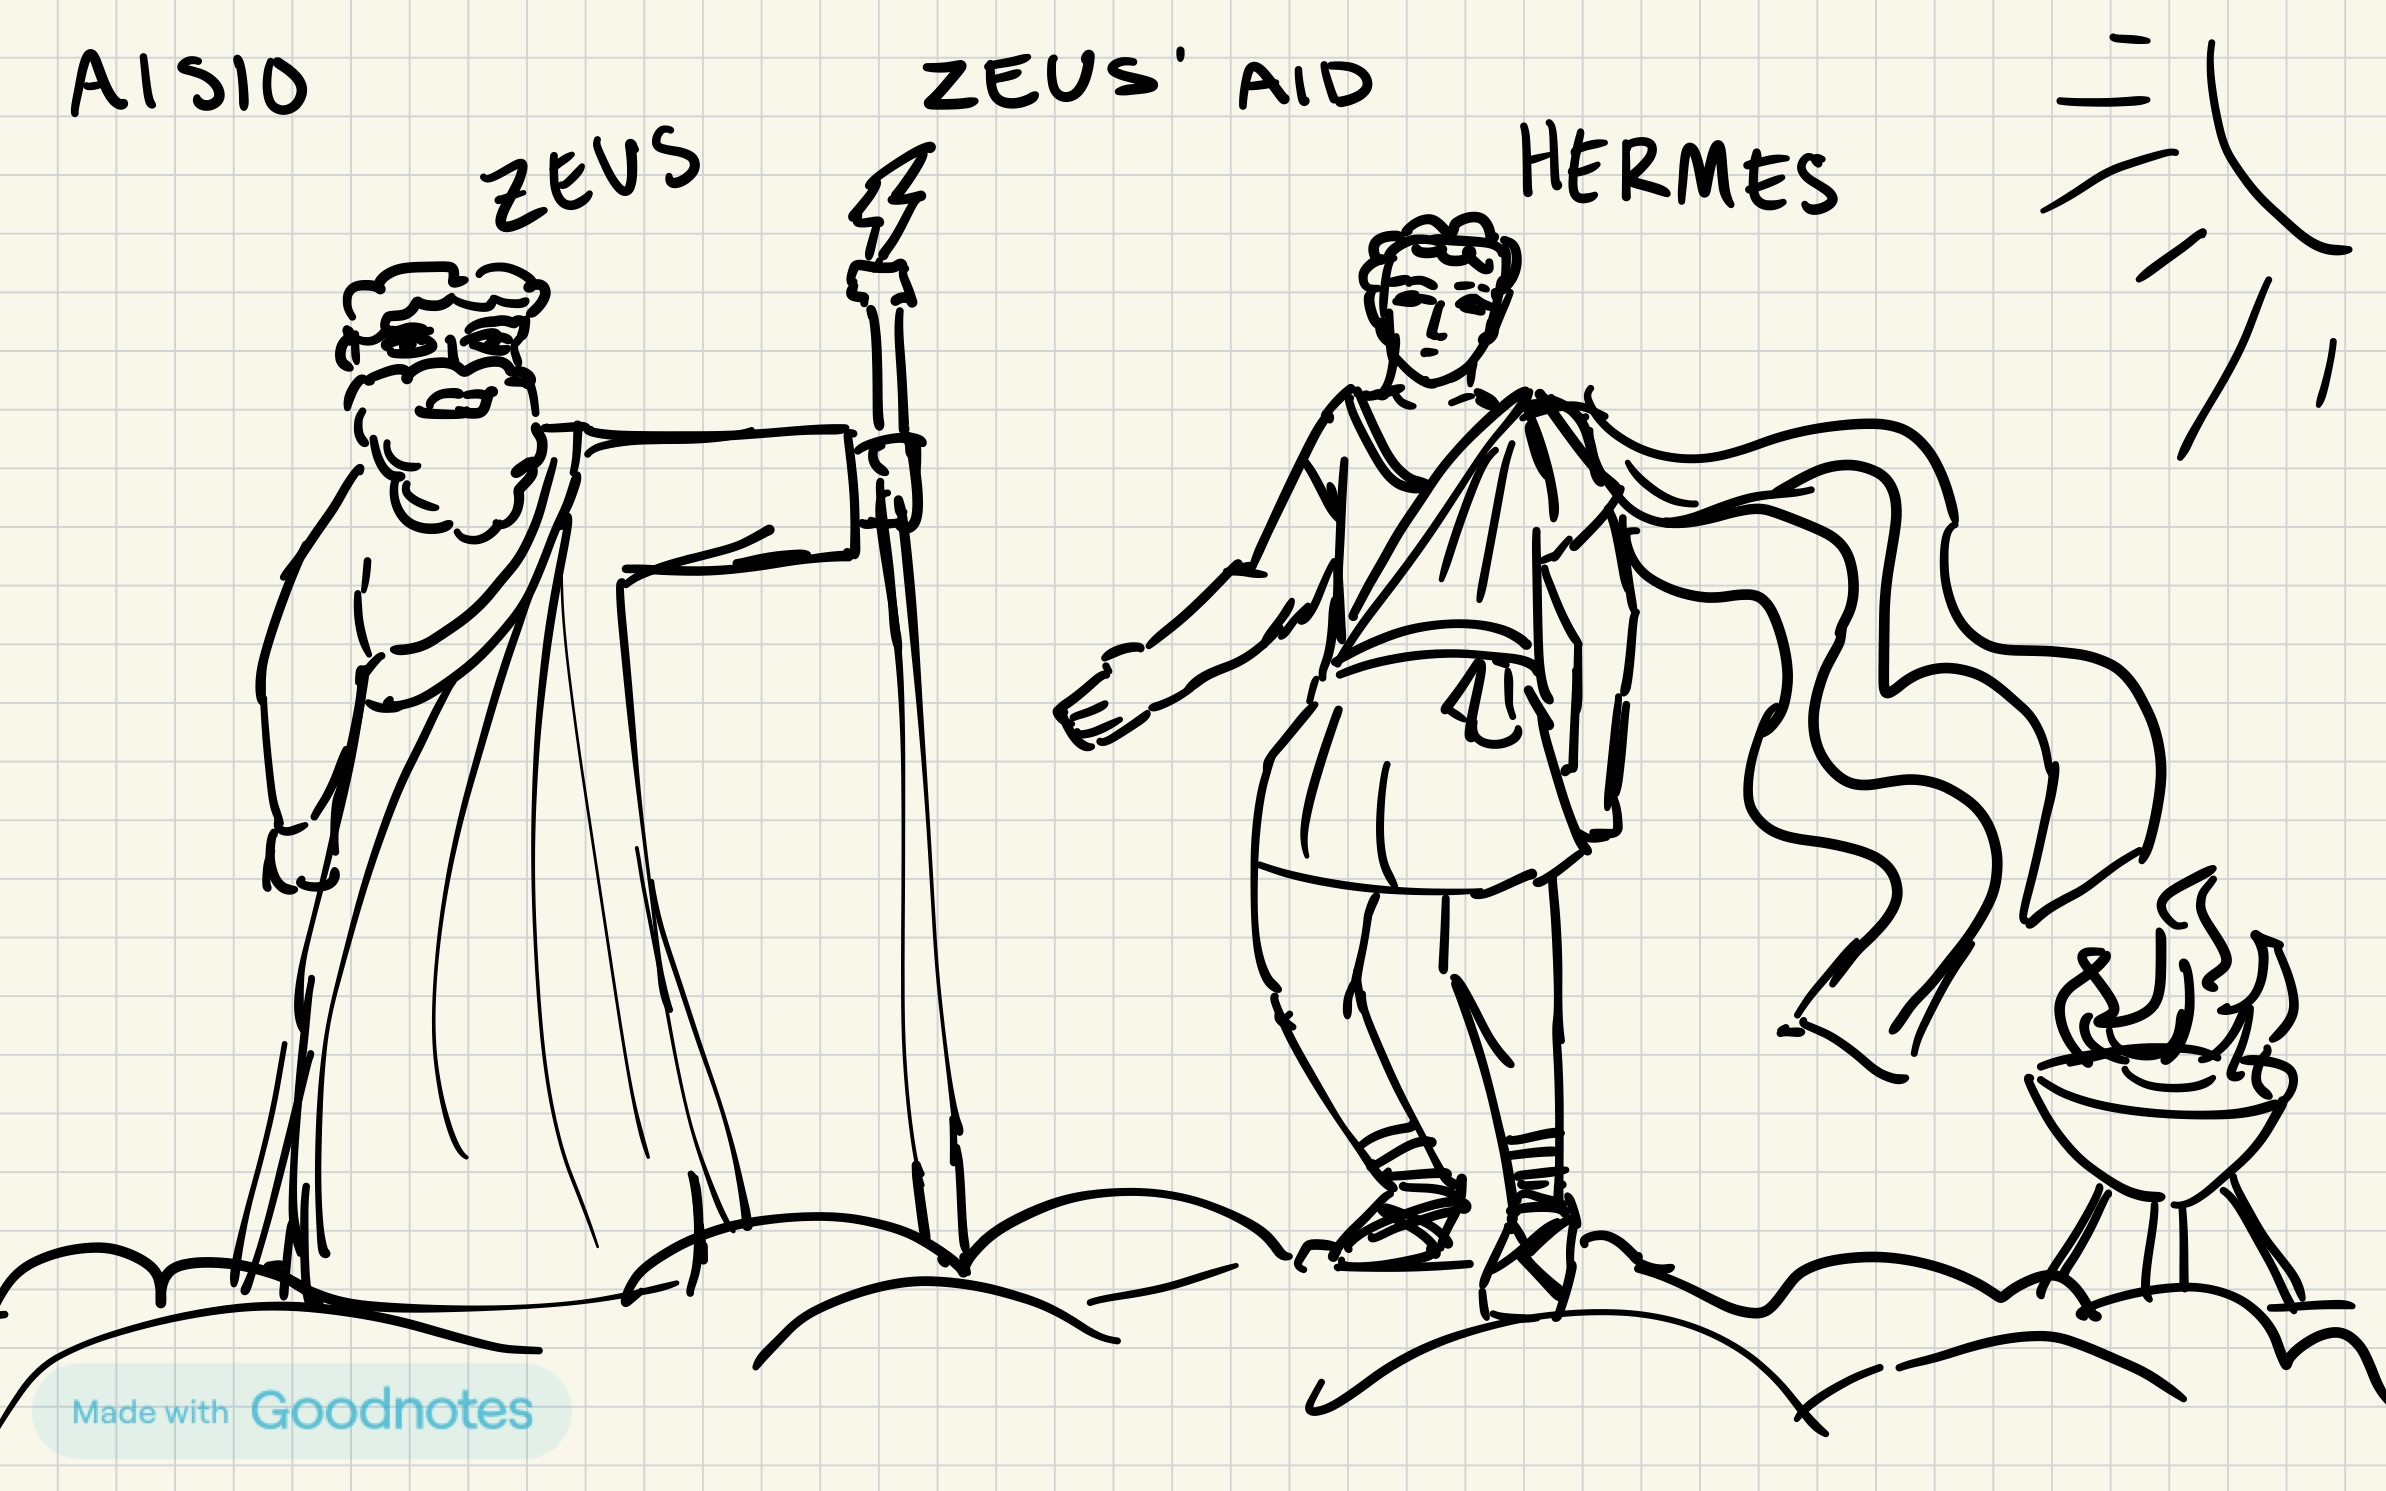 AISIO
ZEUS' AID
ZEUS
HERMES
Made with Goodnotes